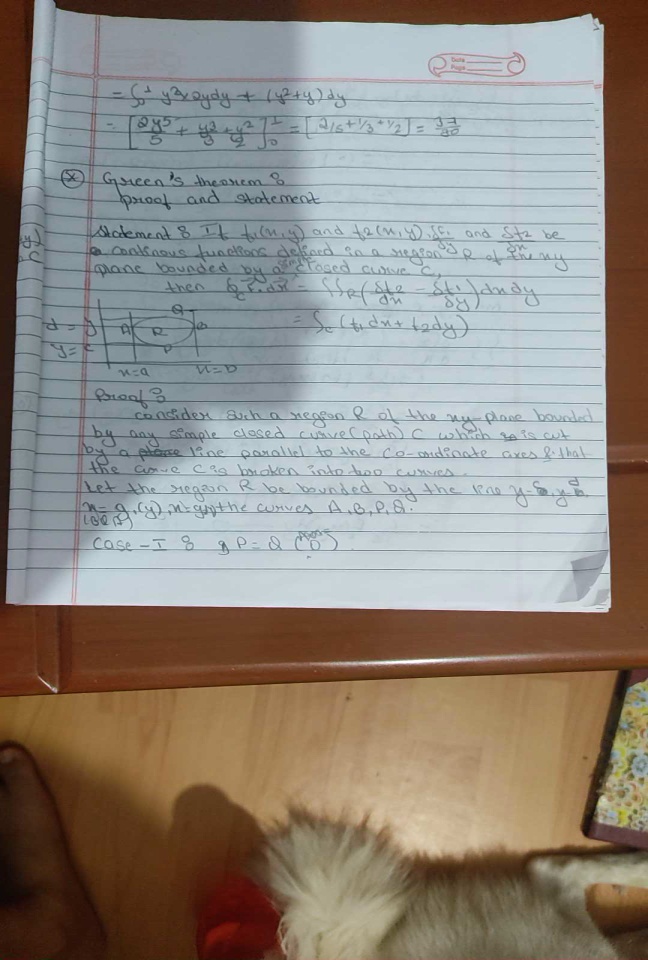 Date
Page
= ∫₀¹ y²x2ydy + (y²+y) dy
= [2y⁵/5 + y³/3 + y²/2]₀¹ = [2/5+1/3+1/2] = 37/30
Green's theorem :
proof and statement
Statement : If f1(x,y) and f2(x,y), δf1/δy and δf2/δx be
a continous functions defined in a region R of the xy
plane bounded by a simple closed curve C,
then ∮c F.dr = ∫∫R (δf2/dx - δf1/δy) dx dy
= ∫c (f1 dx + f2 dy)
Q
d = y A R B
y = c P
x=a x=b
Proof :
consider such a region R of the xy-plane bounded
by any simple closed curve (path) C which is cut
by a plane line parallel to the co-ordinate axes that
the curve C is broken into two curves.
Let the region R be bounded by the line y= y=
x= g, (y), x= the curves A, B, P, Q.
Case - I : P = Q